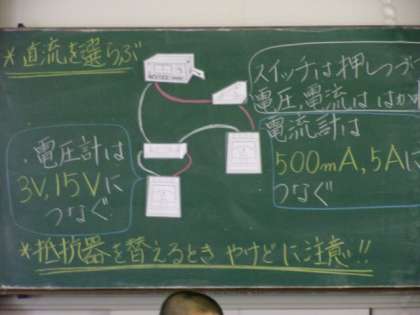 *直流を選らぶ
スイッチは押しつづ
電圧、電流は はか
電流計は
500mA, 5Aに
つなぐ
・電圧計は
3V, 15Vに
つなぐ
*抵抗器を替えるとき やけどに注意!!